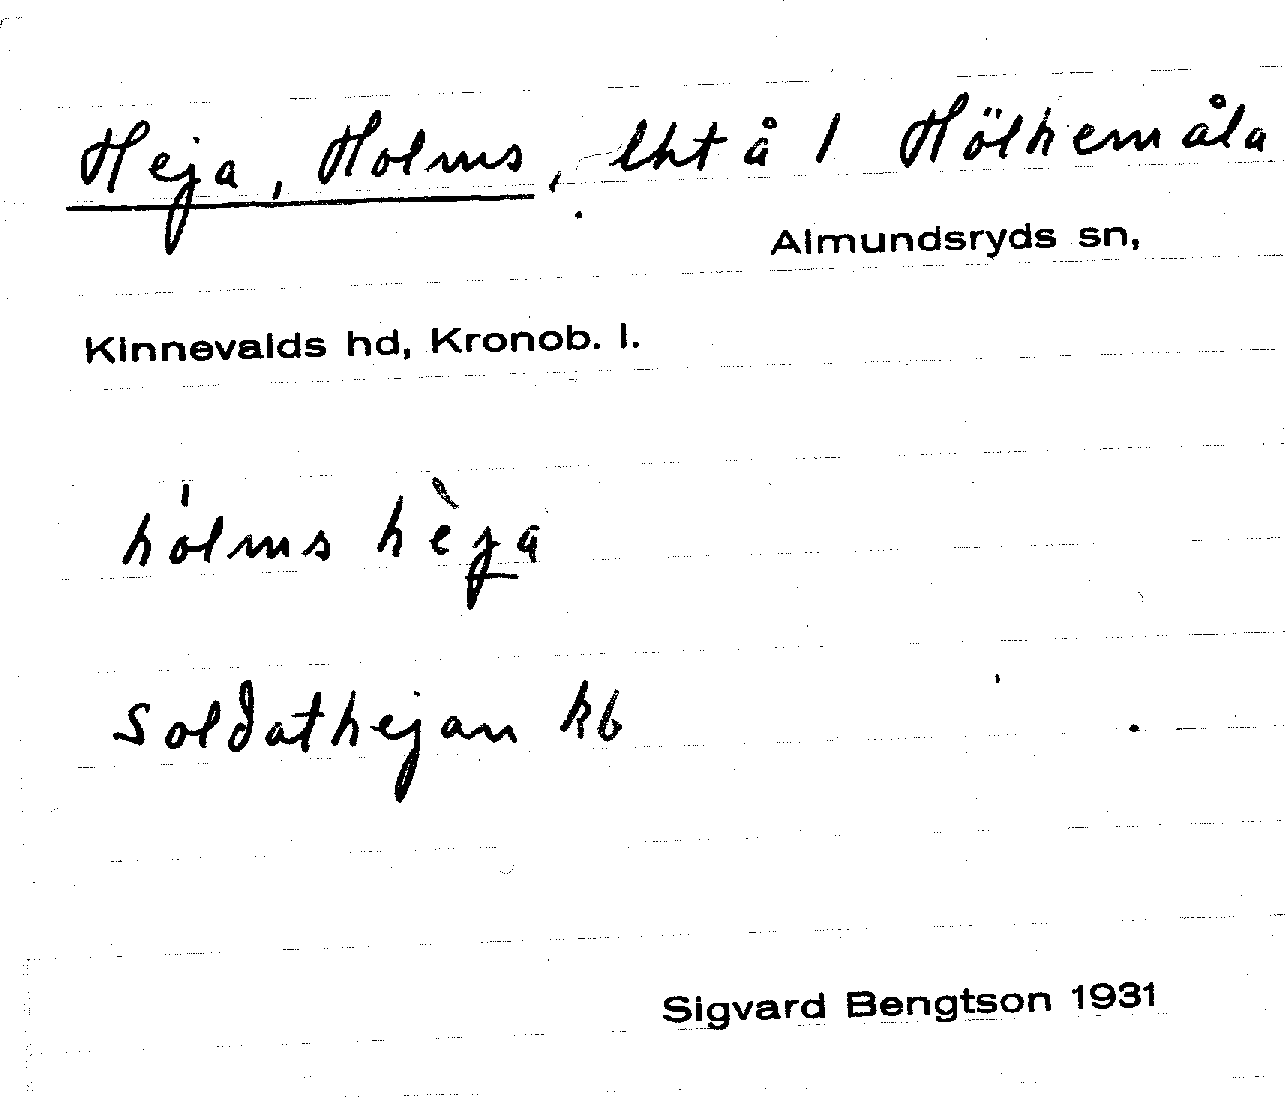 Heja, Holms, lht å 1 Hölhemåla
Almundsryds sn,
Kinnevalds hd, Kronob. l.
hólms hèja
soldathejan kb
Sigvard Bengtson 1931